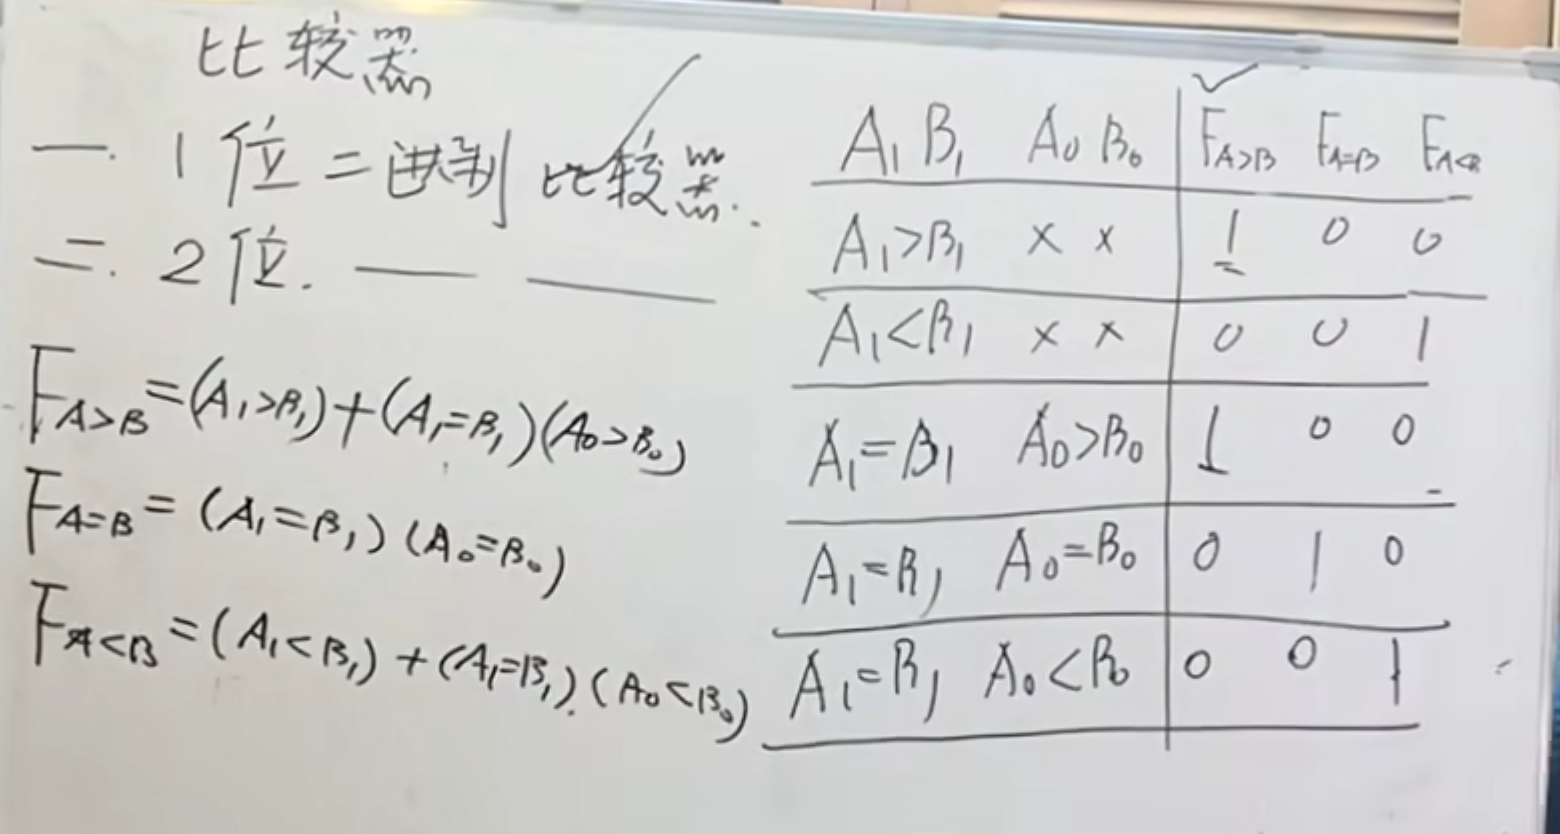 比较器
一. 1位二进制比较器.
二. 2位. — —
F_{A>B}=(A₁>B₁)+(A₁=B₁)(A₀>B₀)
F_{A=B}=(A₁=B₁)(A₀=B₀)
F_{A<B}=(A₁<B₁)+(A₁=B₁).(A₀<B₀)
A₁ B₁ A₀ B₀ F_{A>B} F_{A=B} F_{A<B}
A₁>B₁ × × 1 0 0
A₁<B₁ × × 0 0 1
A₁=B₁ A₀>B₀ 1 0 0
A₁=B₁ A₀=B₀ 0 1 0
A₁=B₁ A₀<B₀ 0 0 1